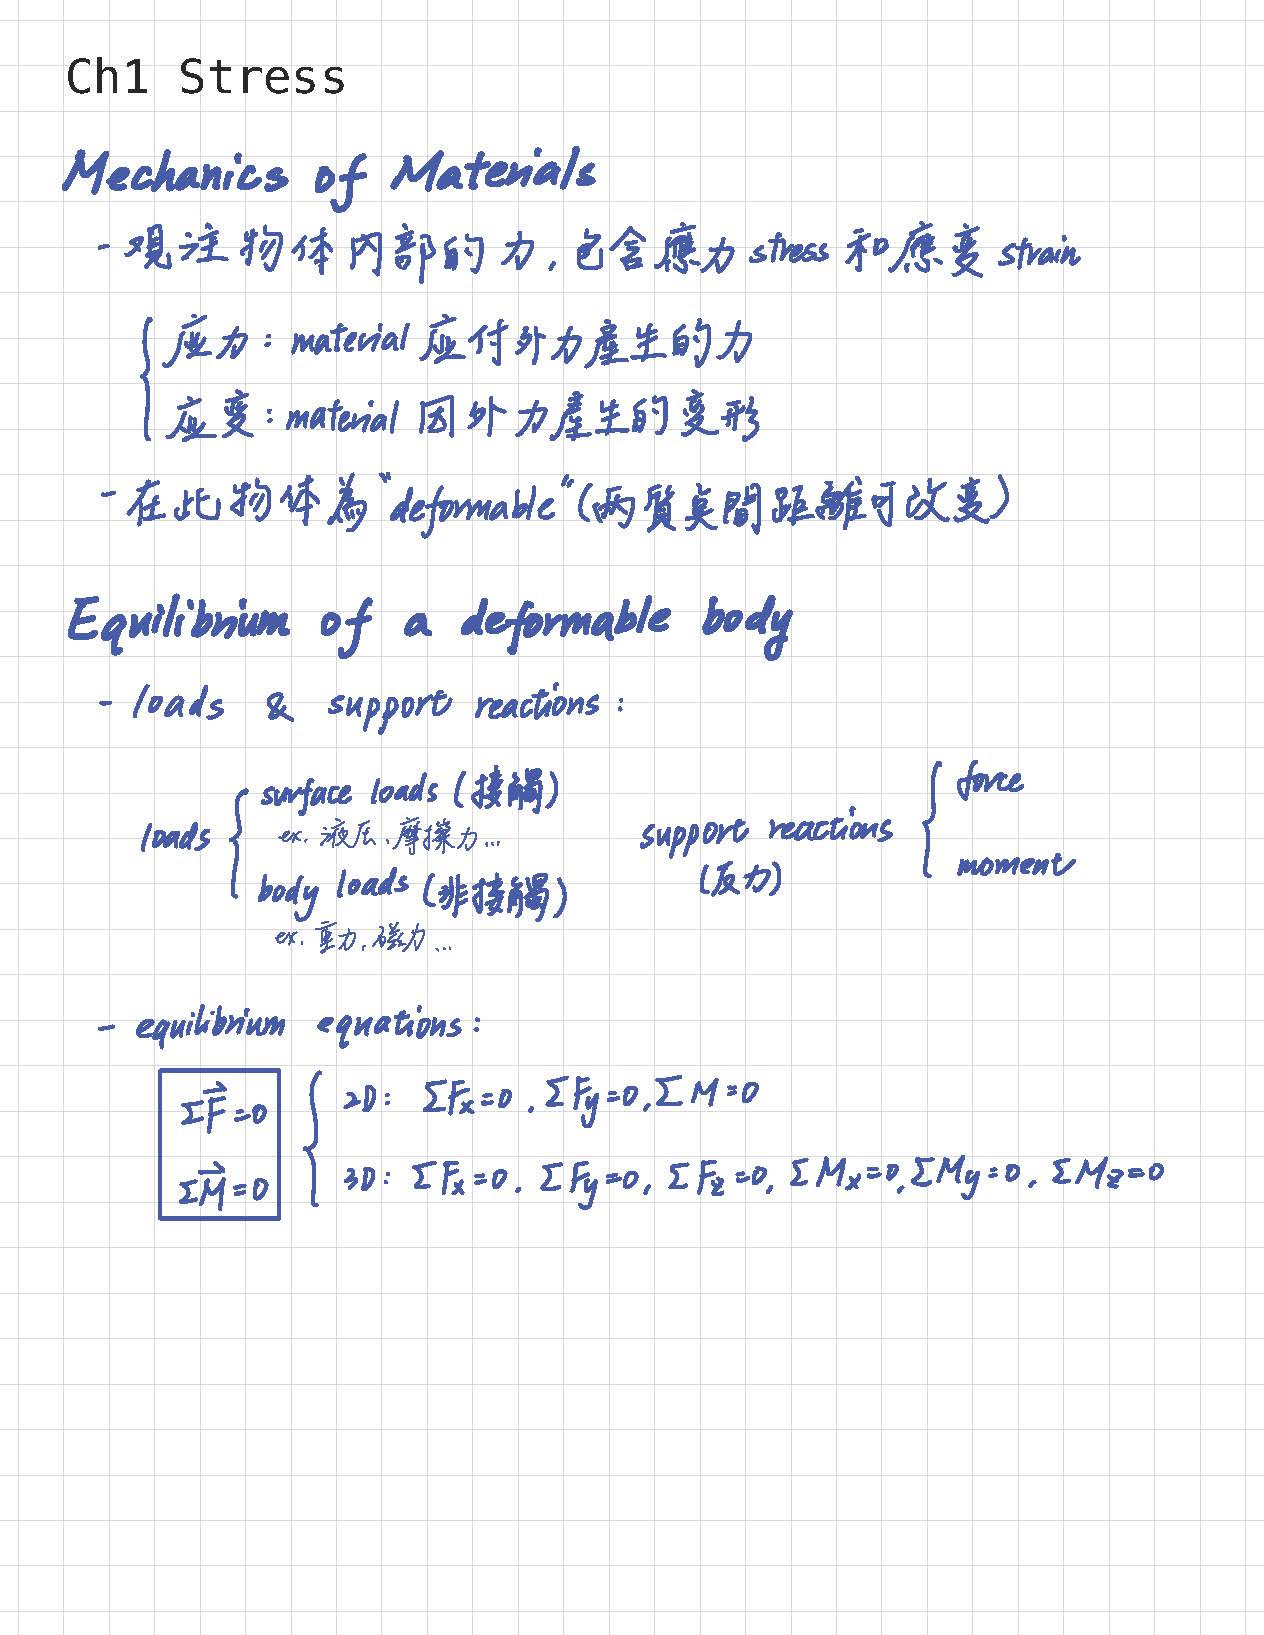 Ch1 Stress
Mechanics of Materials
- 观注物体內部的力, 包含應力 stress 和應変 strain
应力: material 应付外力產生的力
应変: material 因外力產生的変形
- 在此物体為 "deformable" (两質奌間距離可改変)
Equilibrium of a deformable body
- loads & support reactions:
loads { surface loads (接觸)
ex. 液压、摩擦力...
body loads (非接觸)
ex. 重力, 磁力...
support reactions { force
(反力)
moment
- equilibrium equations:
ΣF⃗=0
ΣM⃗=0
2D: ΣFx=0, ΣFy=0, ΣM=0
3D: ΣFx=0, ΣFy=0, ΣFz=0, ΣMx=0, ΣMy=0, ΣMz=0